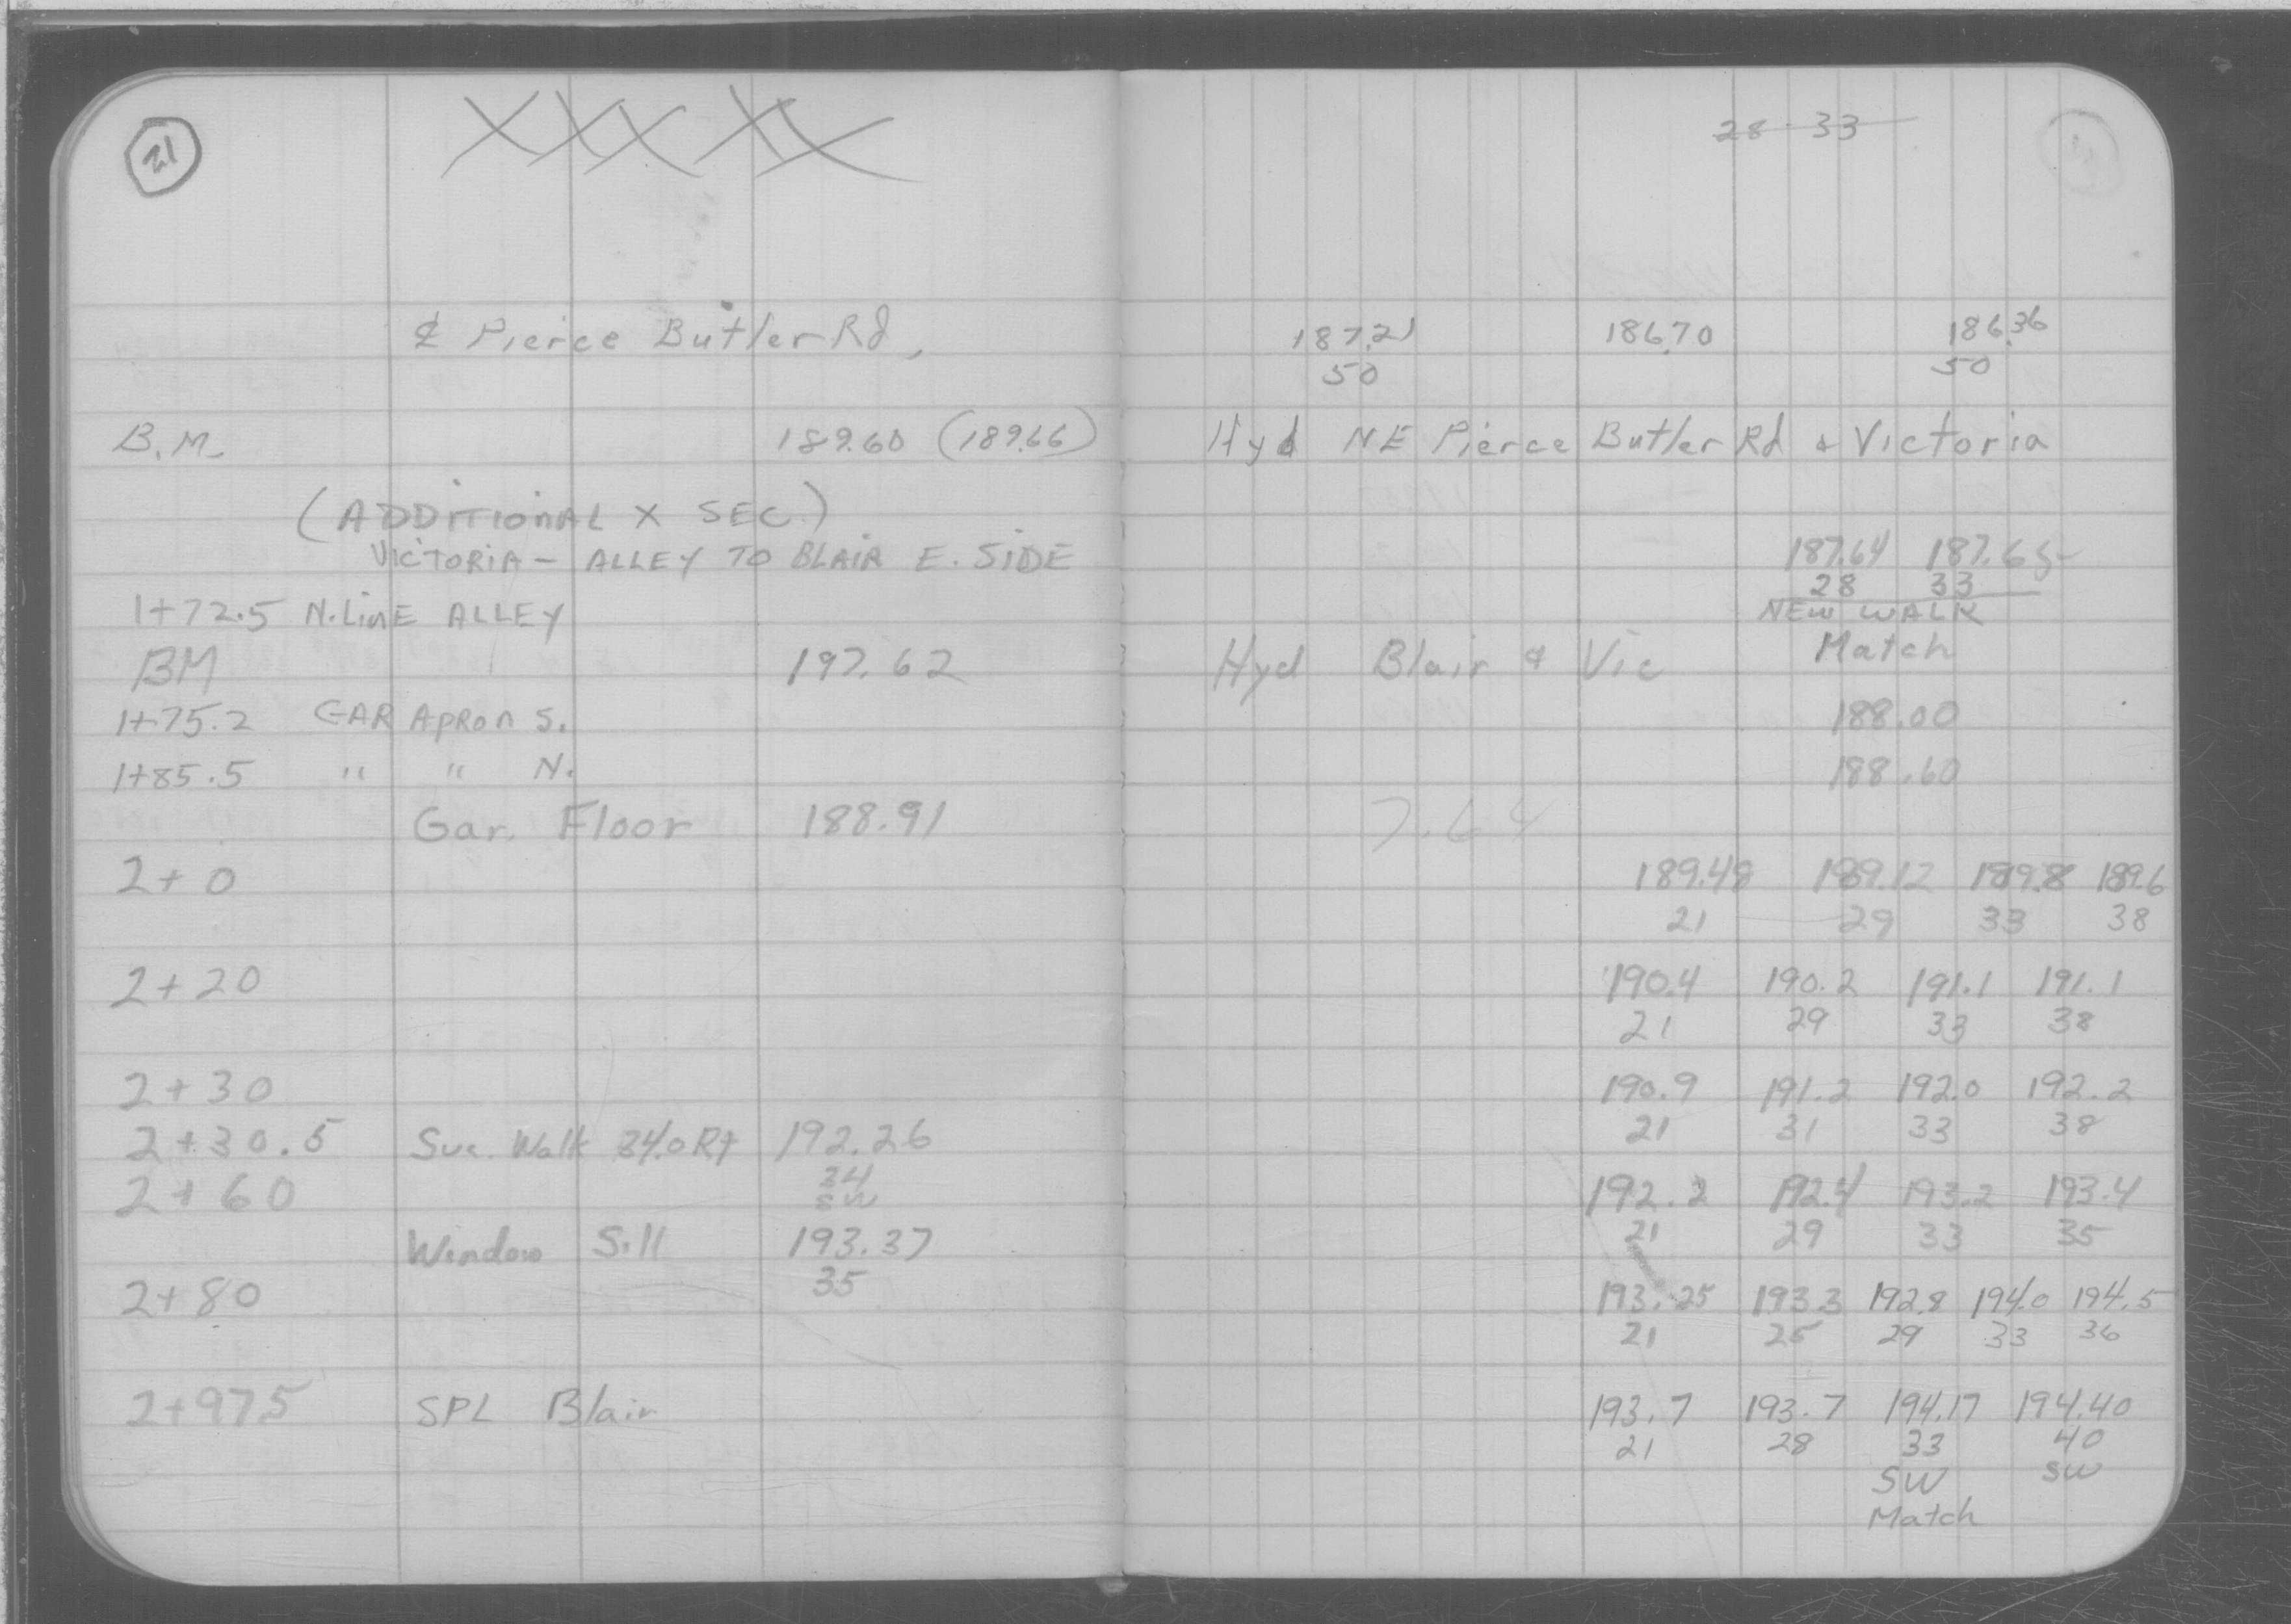 21
XXX XX
28 - 33
℄ Pierce Butler Rd, 187.21 186.70 186.36
50 50
B.M. 189.60 (189.66) Hyd NE Pierce Butler Rd & Victoria
(ADDITIONAL X SEC.)
VICTORIA - ALLEY TO BLAIR E. SIDE 187.64 187.65
28 33
1+72.5 N.LINE ALLEY NEW WALK
BM 197.62 Hyd Blair & Vic Match
1+75.2 GAR APRON S. 188.00
1+85.5 " " N. 188.60
Gar. Floor 188.91 7.64
2+0 189.48 189.12 189.8 189.6
21 29 33 38
2+20 190.4 190.2 191.1 191.1
21 29 33 38
2+30 190.9 191.2 192.0 192.2
2+30.5 Svc. Walk 34.0 Rt 192.26 21 31 33 38
34
2+60 SW 192.2 192.4 193.2 193.4
Window Sill 193.37 21 29 33 35
35
2+80 193.25 193.3 192.8 194.0 194.5
21 25 29 33 36
2+975 SPL Blair 193.7 193.7 194.17 194.40
21 28 33 40
SW SW
Match